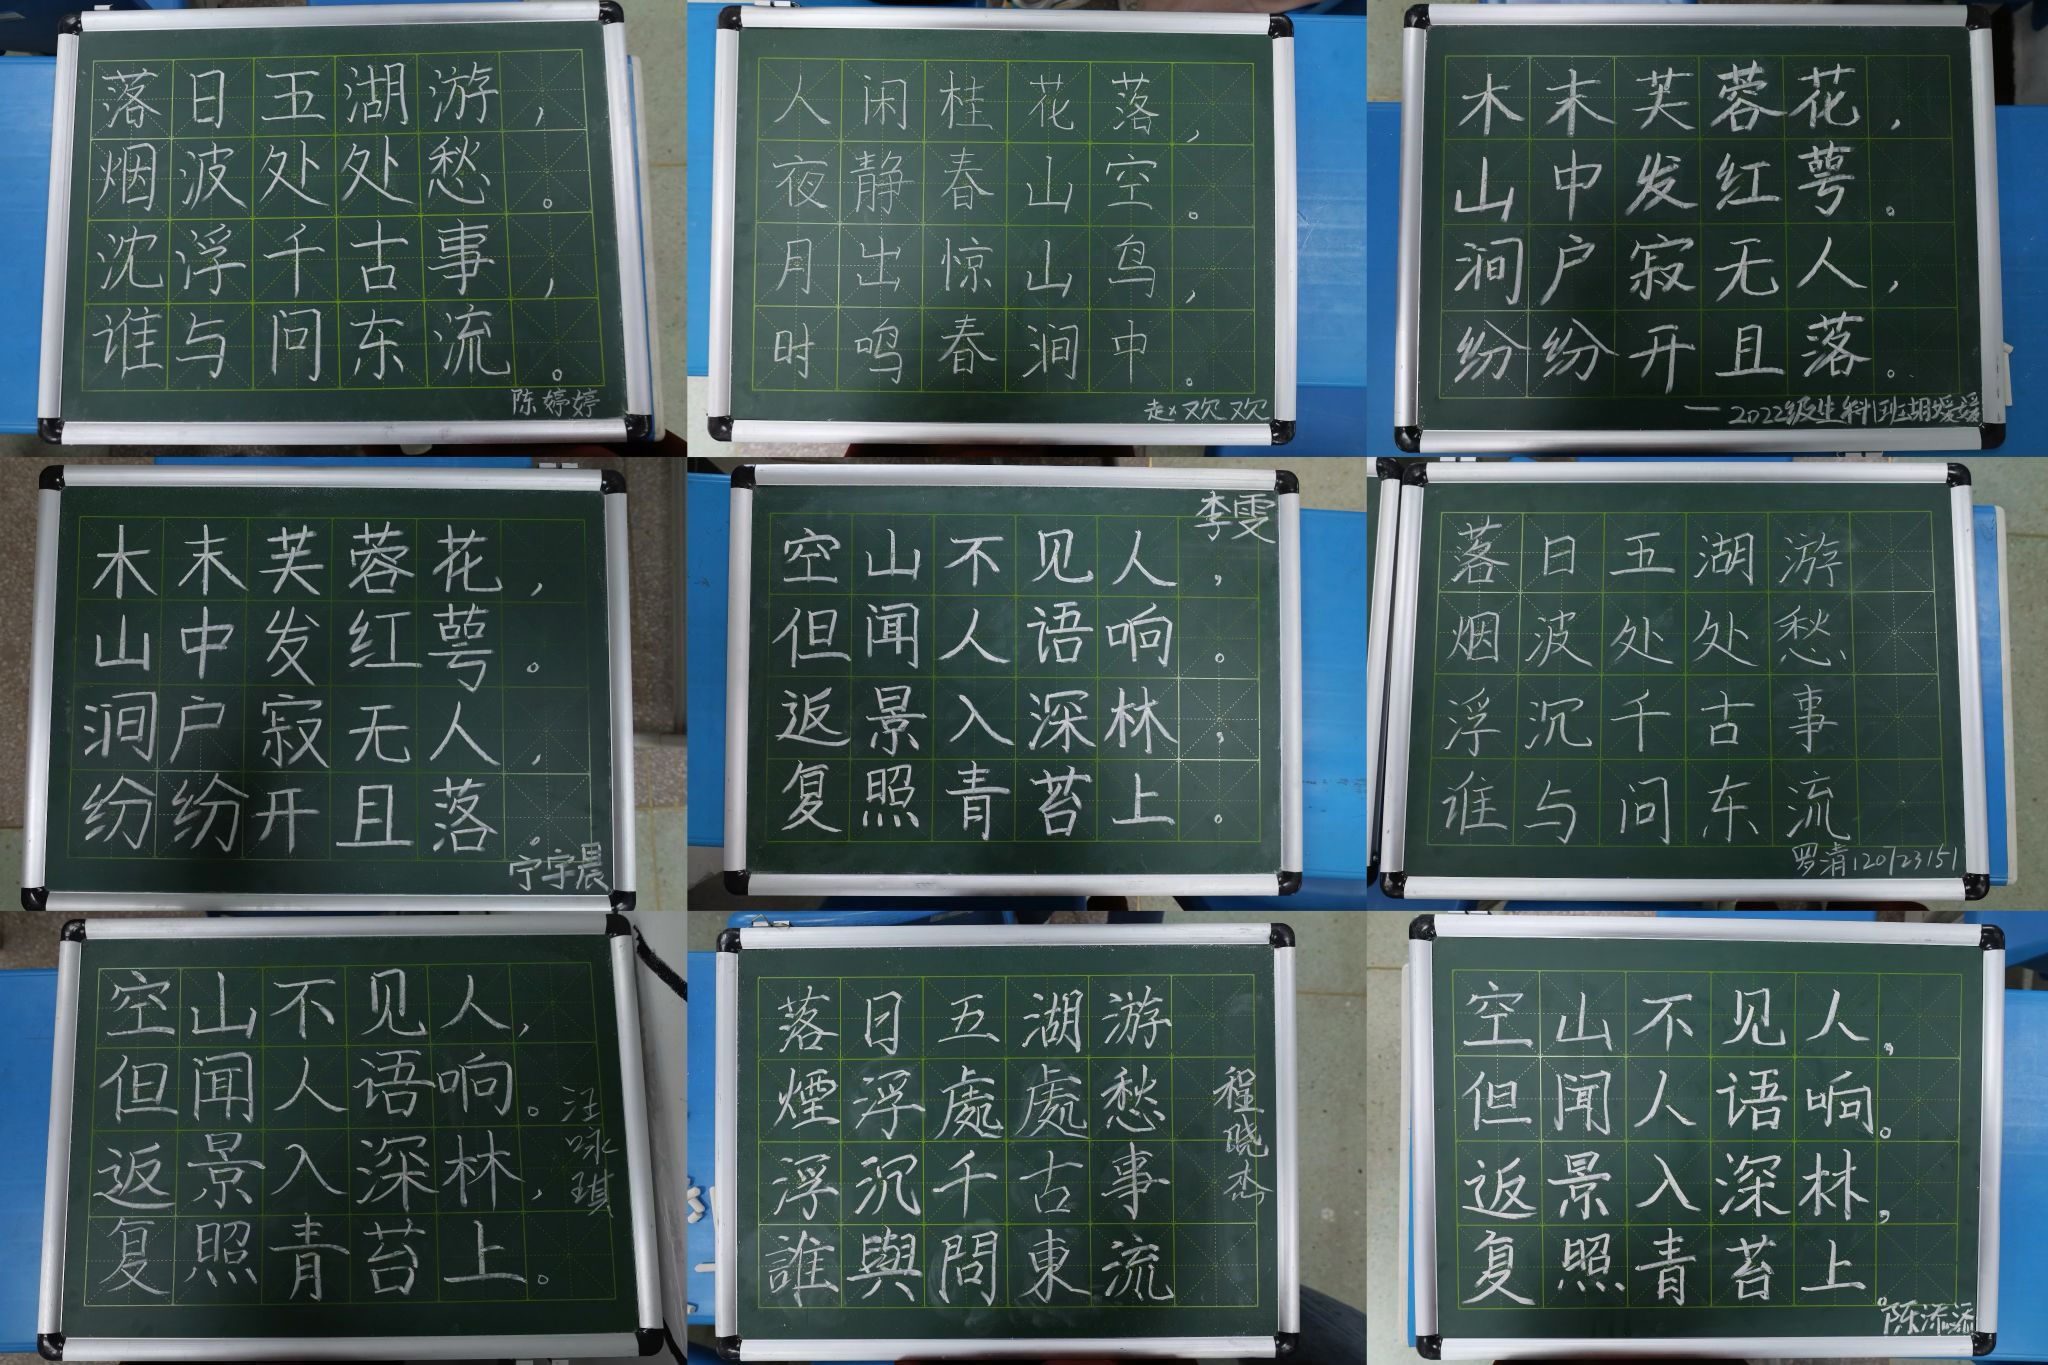 落日五湖游，
烟波处处愁。
沈浮千古事，
谁与问东流。
陈婷婷
人闲桂花落，
夜静春山空。
月出惊山鸟，
时鸣春涧中。
赵欢欢
木末芙蓉花，
山中发红萼。
涧户寂无人，
纷纷开且落。
—2022级生科1班胡媛媛
木末芙蓉花，
山中发红萼。
涧户寂无人，
纷纷开且落。
宁宇晨
李雯
空山不见人，
但闻人语响。
返景入深林，
复照青苔上。
落日五湖游
烟波处处愁
浮沉千古事
谁与问东流
罗清120723151
空山不见人，
但闻人语响。
返景入深林，
复照青苔上。
汪咏琪
落日五湖游
煙浮處處愁
浮沉千古事
誰與問東流
程晓杰
空山不见人，
但闻人语响。
返景入深林，
复照青苔上。
陈添添